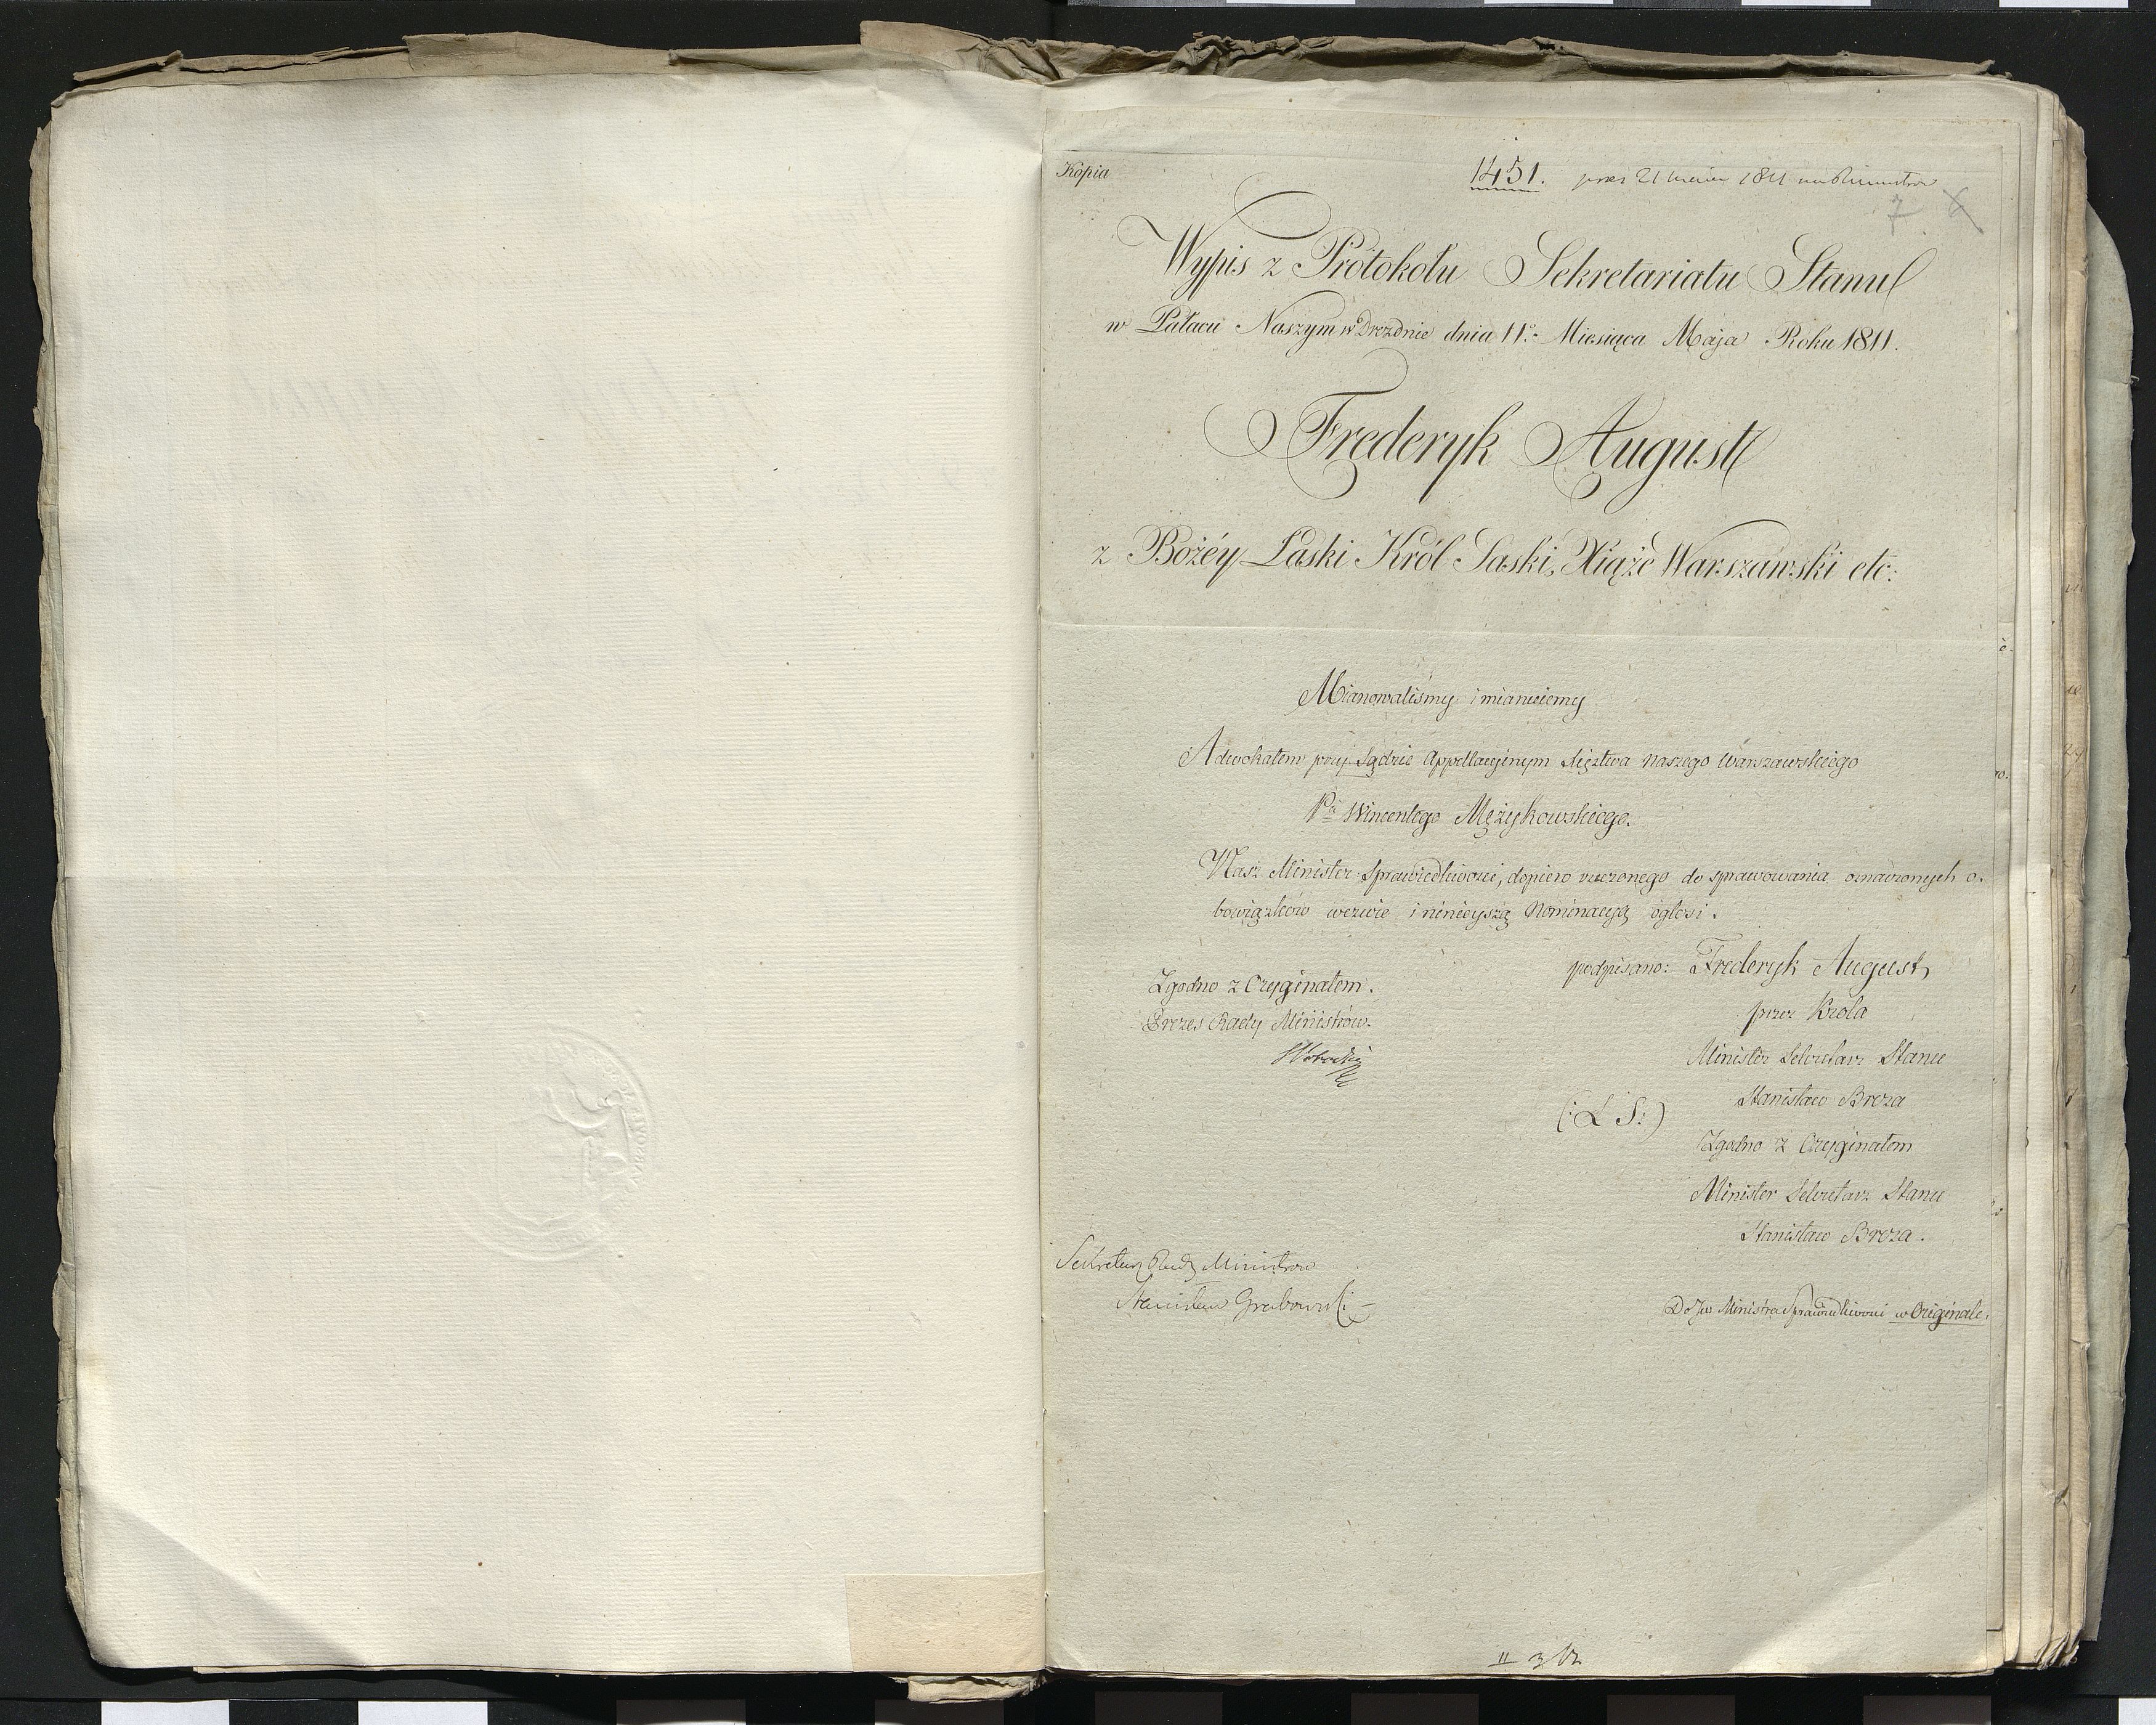 Kópia
1451. 21 1811
7 6
Wypis z Protokołu Sekretariatu Stanu
w Pałacu Naszym w Dreznie dnia 11º Miesiąca Maja Roku 1811.
Frederyk August
z Bożéy Łaski Król Saski, Xiąże Warszawski etc:
Mianowaliśmy i mianuiemy
Adwokatem przy Sądzie Appellacyinym Xięztwa naszego Warszawskiego
Pa Wincentego Mężykowskiego.
Nasz Minister Sprawiedliwości, dopiero rzeczonego do sprawowania oznaczonych o-
bowiązków wezwie i ninieyszą Nominacyą ogłosi.
podpisano: Frederyk August,
przez Krola
Minister Sekretarz Stanu
Stanisław Breza
(: L S :)
Zgodno z Oryginałem
Minister Sekretarz Stanu
Stanisław Breza.
Zgodno z Oryginałem.
Prezes Rady Ministrów.
Sekretarz Rady Ministrow
Stanisław Grabowski
Do JW Ministra Sprawiedliwości w Originale.